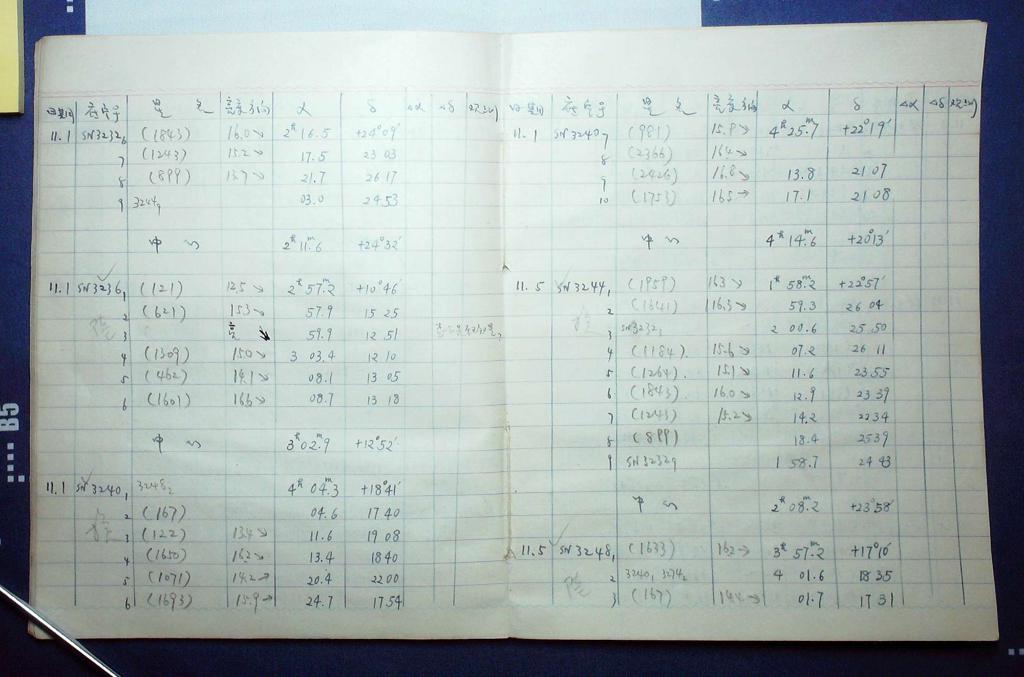 日期 底片号 星名 亮度方向 α δ Δα Δδ
11.1 SN3232₆ (1843) 16.0↘ 2ʰ 16.5 +24°09′
7 (1243) 15.2↘ 17.5 23 03
8 (899) 21.7 26 17
9 3244₉ 03.0 24 53
中心 2ʰ 11.6ᵐ +24°32′
11.1 SN3236₁ (121) 12.5↘ 2ʰ 57.2ᵐ +10°46′
2 (621) 15.3↘ 57.9 15 25
3 亮 ↘ 59.9 12 51
4 (1309) 15.0↘ 3 03.4 12 10
5 (462) 14.1↘ 08.1 13 05
6 (1601) 16.6↘ 08.7 13 18
中心 3ʰ 02.9ᵐ +12°52′
11.1 SN3240₁ 3248₂ 4ʰ 04.3ᵐ +18°41′
2 (167) 04.6 17 40
3 (122) 13.4↘ 11.6 19 08
4 (1650) 16.2↘ 13.4 18 40
5 (1071) 14.2→ 20.4 22 00
6 (1693) 15.9→ 24.7 17 54
日期 底片号 星名 亮度方向 α δ Δα Δδ
11.1 SN3240₇ (981) 15.9↘ 4ʰ 25.7ᵐ +22°19′
8 (2366) 16.4↘
9 (2426) 16.8↘ 13.8 21 07
10 (1753) 16.5→ 17.1 21 08
中心 4ʰ 14.6ᵐ +20°13′
11.5 SN3244₁ (1959) 16.3↘ 1ʰ 58.2ᵐ +22°57′
2 (1641) 16.3↘ 59.3 26 04
3 SN3232₃ 2 00.6 25 50
4 (1184) 15.6↘ 07.2 26 11
5 (1264) 15.1↘ 11.6 23 55
6 (1843) 16.0↘ 12.9 23 39
7 (1243) 15.2↘ 14.2 22 34
8 (899) 18.4 25 39
9 SN3232₉ 1 58.7 24 43
中心 2ʰ 08.2ᵐ +23°58′
11.5 SN3248₁ (1633) 16.2→ 3ʰ 57.2ᵐ +17°10′
2 3240₁ 3274₂ 4 01.6 18 35
3 (167) 14.4↘ 01.7 17 31
B5